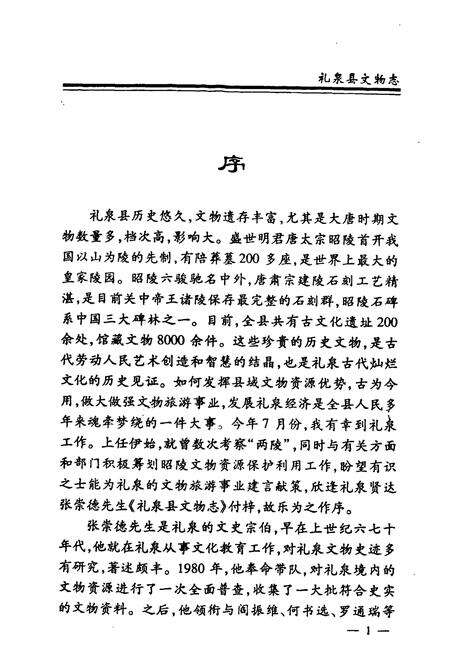 礼泉县文物志
序
礼泉县历史悠久，文物遗存丰富，尤其是大唐时期文
物数量多，档次高，影响大。盛世明君唐太宗昭陵首开我
国以山为陵的先制，有陪葬墓 200 多座，是世界上最大的
皇家陵园。昭陵六骏驰名中外，唐肃宗建陵石刻工艺精
湛，是目前关中帝王诸陵保存最完整的石刻群，昭陵石碑
系中国三大碑林之一。目前，全县共有古文化遗址 200
余处，馆藏文物 8000 余件。这些珍贵的历史文物，是古
代劳动人民艺术创造和智慧的结晶，也是礼泉古代灿烂
文化的历史见证。如何发挥县域文物资源优势，古为今
用，做大做强文物旅游事业，发展礼泉经济是全县人民多
年来魂牵梦绕的一件大事。今年 7 月份，我有幸到礼泉
工作。上任伊始，就曾数次考察“两陵”，同时与有关方面
和部门积极筹划昭陵文物资源保护利用工作，盼望有识
之士能为礼泉的文物旅游事业建言献策，欣逢礼泉贤达
张崇德先生《礼泉县文物志》付梓，故乐为之作序。
张崇德先生是礼泉的文史宗伯，早在上世纪六七十
年代，他就在礼泉从事文化教育工作，对礼泉文物史迹多
有研究，著述颇丰。1980 年，他奉命带队，对礼泉境内的
文物资源进行了一次全面普查，收集了一大批符合史实
的文物资料。之后，他领衔与阎振维、何书选、罗通瑞等
— 1 —